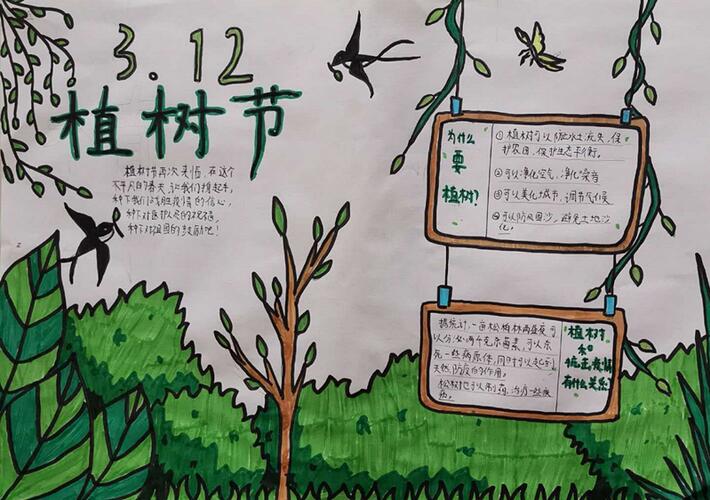 3.12
植树节
植树节再次来临,在这个
不平凡的春天,让我们携起手,
种下我们战胜疫情的信心,
种下对逝去人民的祝福,
种下对祖国的鼓励吧!
为什么
要
植树?
①植树可以防止水土流失,保
护农田,保护生态平衡。
②可以净化空气,净化噪音
③可以美化城市,调节气候
④可以防风固沙,避免土地沙
化。
据统计,一亩松柏林两昼夜可
以分泌两千克杀菌素,可以杀
死一些病原体,同时可以起到
天然防疫的作用。
松树也可以制药,治疗一些疾
病。
植树
和
抗击疫情
有什么关系